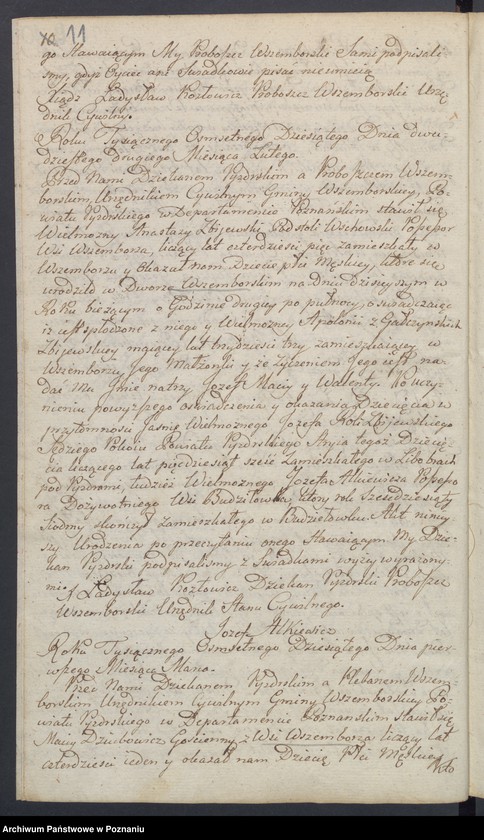 10 11
go Stawaiącym My Proboszcz Wszemborski Sami podpisali
smy, gdyż Oyciec ani Swiadkowie pisać nieumieią
Xiądz Ladysław Kozłowicz Proboszcz Wszemborski Urzę
dnik Cywilny.
Roku Tysiącznego Osmsetnego Dziesiątego Dnia dwu-
dziestego drugiego Miesiąca Lutego.
Przed Nami Dziekanem Pyzdrskim a Proboszczem Wszem-
borskim, Urzędnikiem Cywilnym Gminy Wszemborskiey, Po-
wiatu Pyzdrskiego w Departamencie Poznanskim stawił się
Wielmozny Anastazy Zbijewski Podstoli Wschowski Possessor
Wsi Wszemborza, liczący lat czterdziesci pięć zamieszkały w
Wszemborzu y okazał nam Dziecie płci Męskiey, które się
urodziło w Dworze Wszemborskim na Dniu dzisieyszym w
Roku bieżącym o Godzinie drugiey po pułnocy, oswiadczaiąc
iż iest spłodzone z niego y Wielmozney Apolonii z Gałczynskich
Zbijewskiey maiącey lat trzydziesci trzy zamieszkaiącey w
Wszemborzu Jego Małzonki y że życzeniem Jego iest na-
dać Mu Jmie na trzy Jozef Maciy y Walenty. Po uczy-
nieniu powyższego oswiadczenia y okazania Dziecięcia w
przytomnosci Jasnie Wielmoznego Jozefa Zbijewskiego
Sędziego Pokoiu Powiatu Pyzdrskiego Stryia tegoż Dziecię-
cia liczącego lat pięćdziesiąt szesć Zamieszkałego w
pod Pyzdrami, tudzież Wielmoznego Jozefa Alkiewicza Possesso
ra Dozywotniego Wsi Budziłowka, ktory rok Szescdziesiąty
siodmy skonczył zamieszkałego w Budziłowku. Akt niniey
szy Urodzenia po przeczytaniu onego Stawaiącym My Dzie-
kan Pyzdrski podpisalismy z Swiadkami wyżey wyrażony-
mi. X Ladysław Kozłowicz Dziekan Pyzdrski Proboszcz
Wszemborski Urzędnik Stanu Cywilnego.
Jozef Alkiewicz
Roku Tysiącznego Osmsetnego Dziesiątego Dnia pier-
wszego Miesiąca Marca.
Przed Nami Dziekanem Pyzdrskim a Plebanem Wszem-
borskim Urzędnikiem Cywilnym Gminy Wszemborskiey Po-
wiatu Pyzdrskiego w Departamencie Poznanskim Stawił się
Maciy Dziubowicz Goscinny z Wsi Wszemborza liczący lat
czterdziesci ieden y okazał nam Dziecię Płci Męskiey
Archiwum Państwowe w Poznaniu
szukajwarchiwach.gov.pl